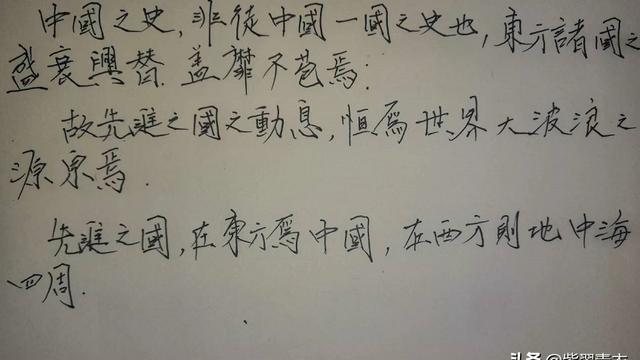 中國之史，非徒中國一國之史也，東方諸國之
盛衰興替 蓋靡不苞焉：
故先進之國之動息，恒爲世界大波浪之
源泉焉．
先進之國，在東方爲中國，在西方則地中海
四周．
头条 @紫翠青杰